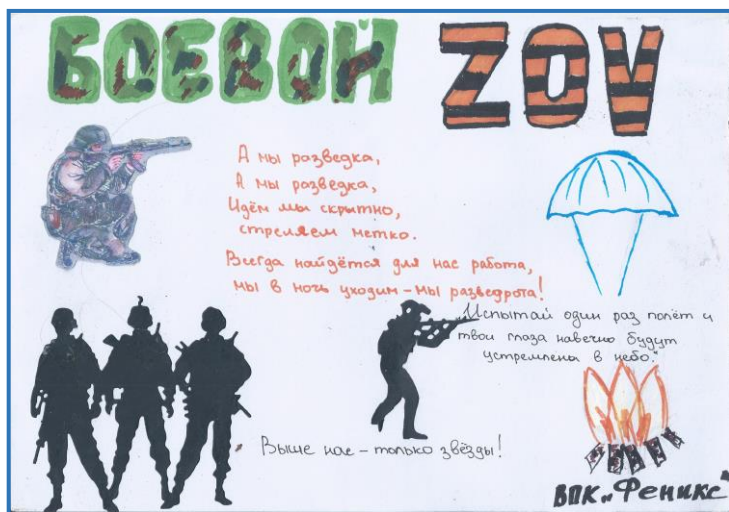 БОЕВОЙ ZOV
А мы разведка,
А мы разведка,
Идём мы скрытно,
стреляем метко.
Всегда найдётся для нас работа,
мы в ночь уходим - мы разведрота!
„Испытай один раз полёт и
твои глаза навечно будут
устремлены в небо."
Выше нас - только звёзды!
ВПК „Феникс"